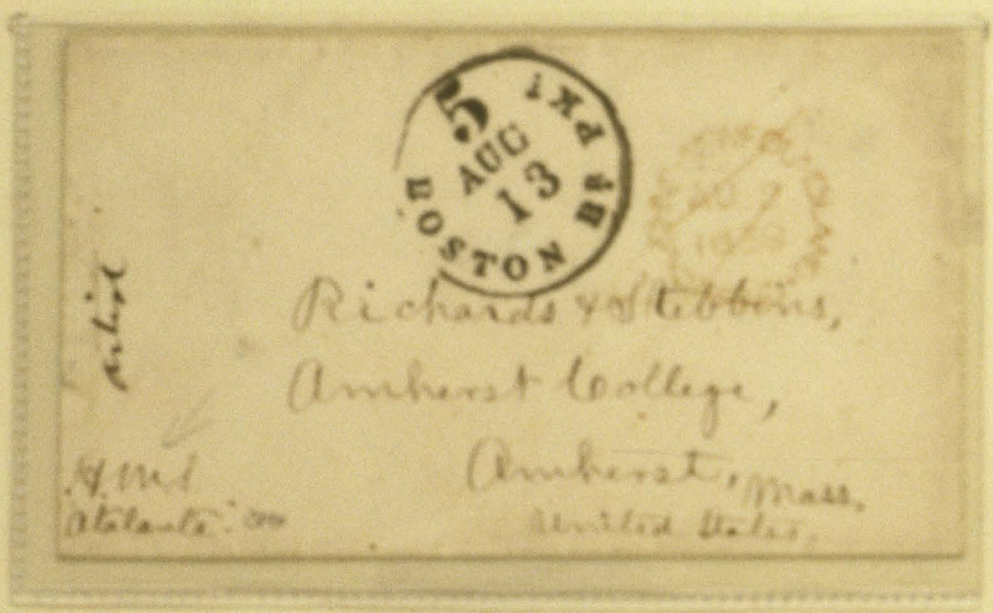 5
AUG
13
BOSTON Br PKT
Richards & Stebbins,
Amherst College,
Amherst, Mass.
United States,
H.M.S
Atalanta